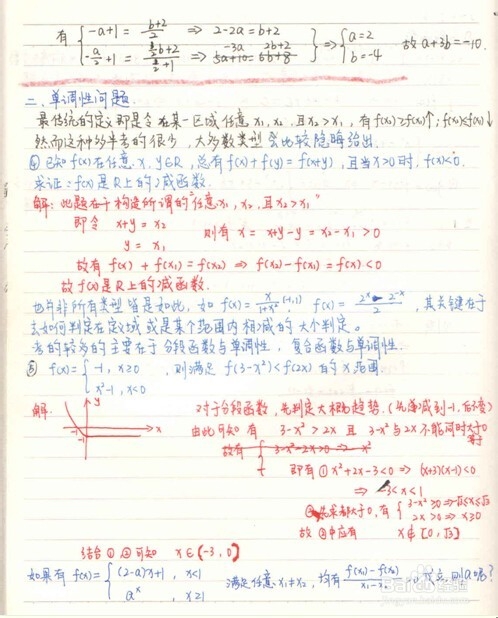 有 { -a+1 = (b+2)/2 ⇒ 2-2a=b+2
⇒ { a=2 b=-4 故 a+3b=-10.
二、单调性问题.
最传统的定义即是令在某一区域任意x₁,x₂,且x₂>x₁,有f(x₂)>f(x₁)↑;f(x₂)<f(x₁)↓
然而这种多年考的很少,大多数类型会比较隐晦给出.
④ 已知f(x)在任意x.y∈R,总有f(x)+f(y)=f(x+y),且当x>0时,f(x)<0.
求证:f(x)是R上的减函数.
解:此题在于构造所谓的"任意x₁,x₂,且x₂>x₁"
即令 x+y=x₂
y=x₁ 则有 x=x+y-y=x₂-x₁>0
故有 f(x)+f(x₁)=f(x₂) ⇒ f(x₂)-f(x₁)=f(x)<0
故f(x)是R上的减函数.
也并非所有类型皆是如此,如 f(x)=x/(1+x²) (-1,1) f(x)=(2ˣ-2⁻ˣ)/2,其关键在于
去如何判定在定义域或是某个范围内相减的大小判定。
考的较多的主要在于分段函数与单调性,复合函数与单调性.
⑤ f(x)={ -1, x≥0
x²-1, x<0 ,则满足 f(3-x²)<f(2x) 的x范围
解.
y
x
-1
-1
对于分段函数,先判定大概趋势.(先减到-1,后不变)
由此可知有 3-x²>2x 且 3-x²与2x不能同时大于0等于
故有 { 3-x²-2x>0 ⇒ x²
即有 ① x²+2x-3<0 ⇒ (x+3)(x-1)<0
⇒ -3<x<1
② 先求都大于0,有 { 3-x²≥0 ⇒ -√3≤x≤√3
2x≥0 ⇒ x≥0
故②中应有 x∉[0,√3]
结合①②可知 x∈(-3,0)
如果有 f(x)={ (2-a)x+1, x<1
aˣ, x≥1 满足任意x₁≠x₂,均有 (f(x₁)-f(x₂))/(x₁-x₂) 成立,则a呢?